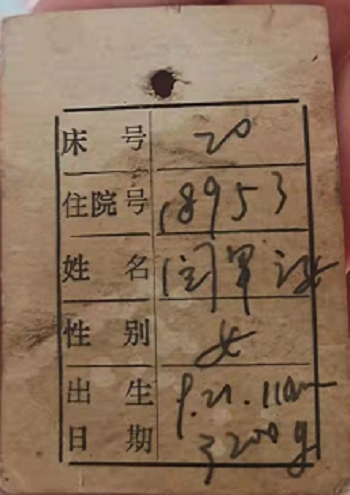 床号 20
住院号 18953
姓名 闫军
性别 女
出生 9.21.11Am
日期 3200g